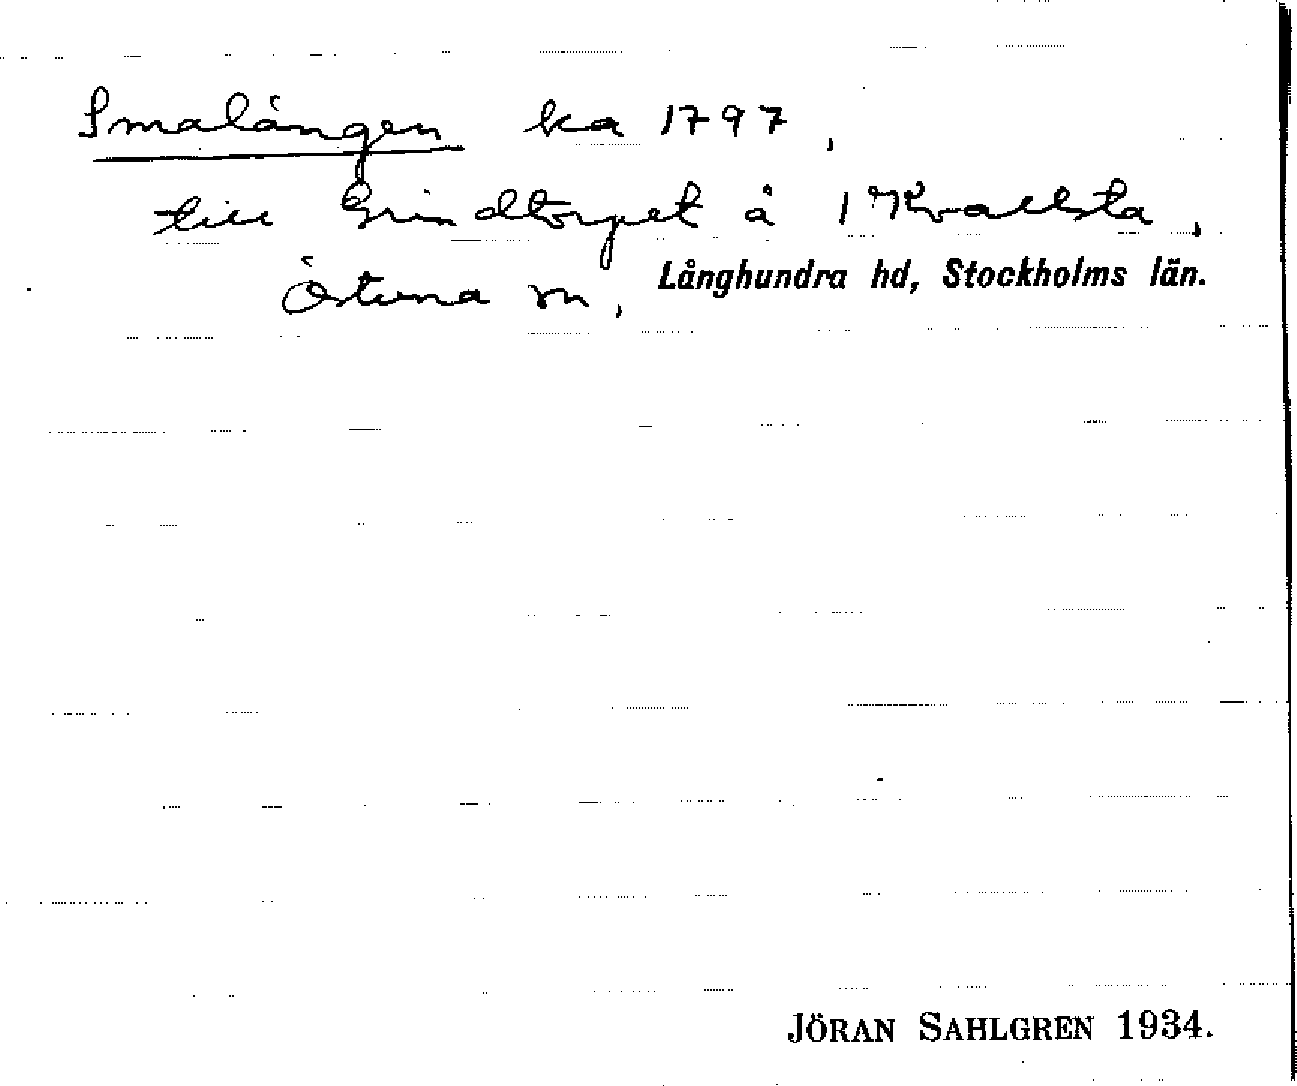 Smalängen ka 1797,
till Grindtorpet å Kvallsta,
Östuna sn, Långhundra hd, Stockholms län.
JÖRAN SAHLGREN 1934.